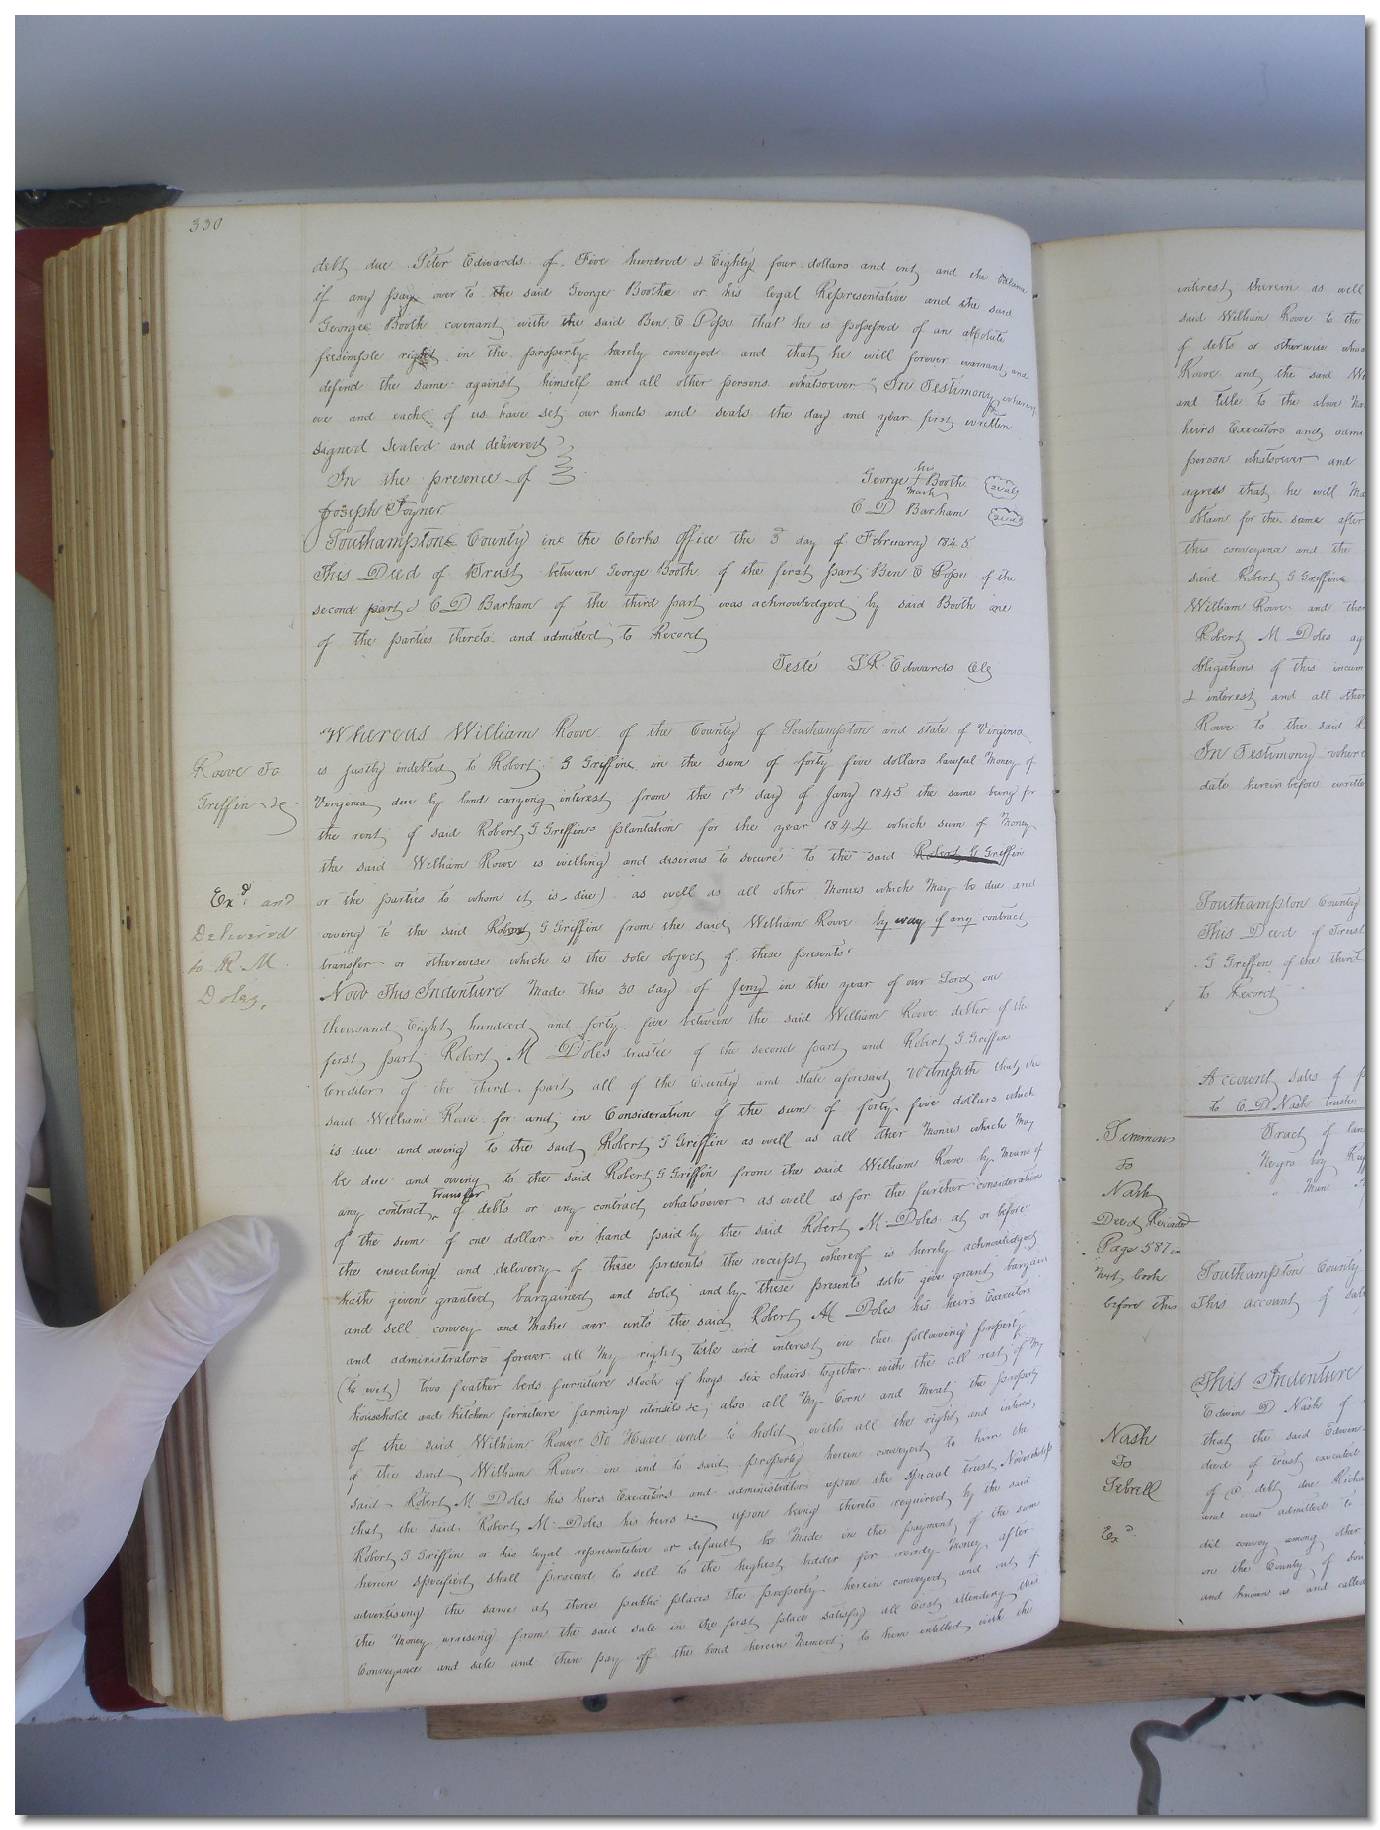 330
debt due Peter Edwards of Five hundred & Eighty four dollars and int and the balance
if any pay over to the said George Booth or his legal Representative and the said
George Booth covenant with the said Ben E Pope that he is possessed of an absolute
feesimple right in the property hereby conveyed and that he will forever warrant and
defend the same against himself and all other persons whatsoever In Testimony whereof
we and each of us have set our hands and seals the day and year first written
signed sealed and delivered
In the presence of
George his + mark Booth seal
Joseph Joyner
C D Barham seal
Southampton County in the Clerks office the 3 day of February 1845
This Deed of Trust between George Booth of the first part Ben E Pope of the
second part & C D Barham of the third part was acknowledged by said Booth one
of the parties thereto and admitted to Record
Teste L R Edwards Clk
Rowe To
Griffin &c
Exd. and
Delivered
to R. M.
Doles,
Whereas William Rowe of the County of Southampton and state of Virginia
is justly indebted to Robert G Griffin in the sum of forty five dollars lawful Money of
Virginia due by bond carrying interest from the 1st day of Jany 1845 the same being for
the rent of said Robert G Griffins plantation for the year 1844 which sum of Money
the said William Rowe is willing and disirous to secure to the said Robert G Griffin
or the parties to whom it is due) as well as all other Monies which May be due and
owing to the said Robert G Griffin from the said William Rowe by way of any contract
transfer or otherwise which is the sole object of these presents
Now This Indenture Made this 30 day of Jany in the year of our Lord one
thousand Eight hundred and forty five between the said William Rowe debtor of the
first part Robert M Doles trustee of the second part and Robert G Griffin
Creditor of the third part all of the County and state aforesaid Witnesseth that the
said William Rowe for and in Consideration of the sum of forty five dollars which
is due and owing to the said Robert G Griffin as well as all other Monies which May
be due and owing to the said Robert G Griffin from the said William Rowe by Means of
any contract transfer of debts or any contract whatsoever as well as for the further consideration
of the sum of one dollar in hand paid by the said Robert M Doles at or before
the ensealing and delivery of these presents the receipt whereof is hereby acknowledged
hath given granted bargained and sold and by these presents doth give grant bargain
and sell convey and Make over unto the said Robert M Doles his heirs Executors
and administrators forever all My right title and interest in the following property
(to wit) two feather beds furniture stock of hogs six chairs together with the all rest of My
household and kitchen furniture farming utensils &c, also all My Corn and Meat, the property
of the said William Rowe To Have and to hold with all the right and interest,
of the said William Rowe in and to said property herein conveyed to him the
said Robert M Doles his heirs Executors and administrators upon the special trust, Nevertheless
that the said Robert M Doles his heirs &c upon being thereto required by the said
Robert G Griffin or his legal representative or default be Made in the payment of the sum
herein specified shall proceed to sell to the highest bidder for ready Money after
advertising the same at three public places the property herein conveyed and out of
the Money arrising from the said sale in the first place satisfy all Cost attending this
Conveyance and sale and then pay off the bond herein Named, to him intitled with the
interest therein as well
said William Rowe to the
of debts or otherwise who
Rowe and the said
and title to the above
heirs Executors and
person whatsoever and
agrees that he will
obtain for the same after
this conveyance and the
said Robert G Griffin
William Rowe and the
Robert M Doles
obligations of this
& interest and all other
Rowe to the said
In Testimony
date herein before
Southampton County
This Deed of Trust
G Griffin of the third
to Record
Account Sales of
to C D Nash trustee
Simmons
To
Nash
Deed Recorded
Page 587 in
next book
before this
Tract of
Negro boy
" Man
Southampton County
This account of
Nash
To
Tebrell
Exd.
This Indenture
Edwin D Nash of
that the said Edwin
deed of trust executed
of a debt due
and was admitted to
did convey among other
in the County of
and known as and called